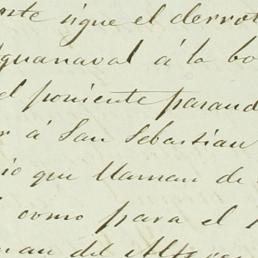 nte sigue el derrot
guanaval á la bo
el poniente parand
r á San Sebastian
io que llaman de
como para el
man del